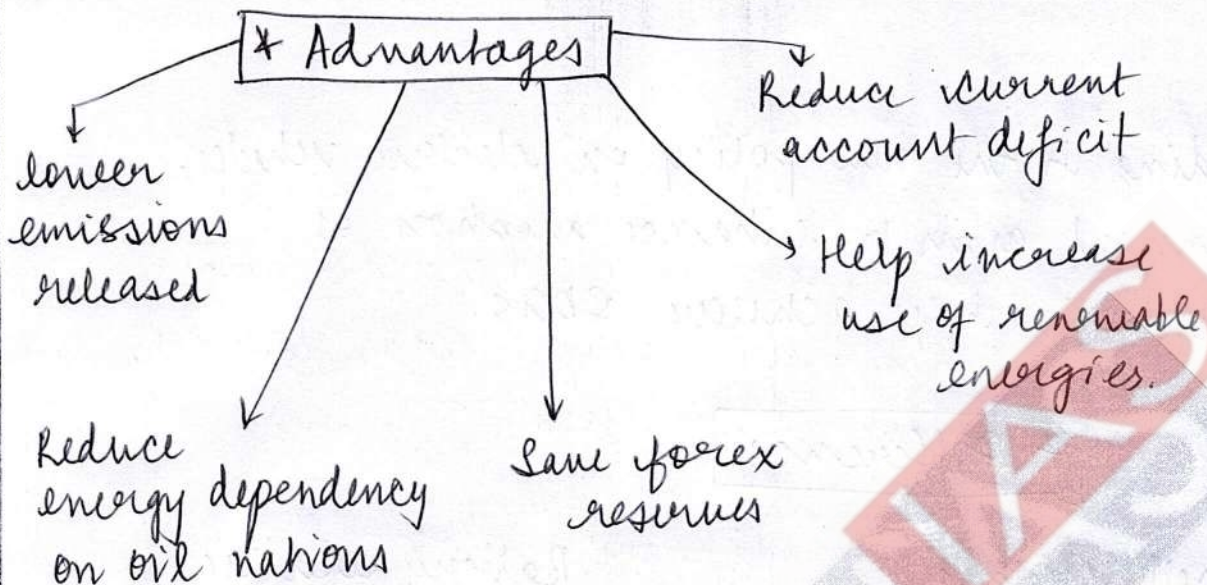 * Advantages
lower
emissions
released
Reduce
energy dependency
on oil nations
Save forex
reserves
Help increase
use of renewable
energies.
Reduce current
account deficit
IAS